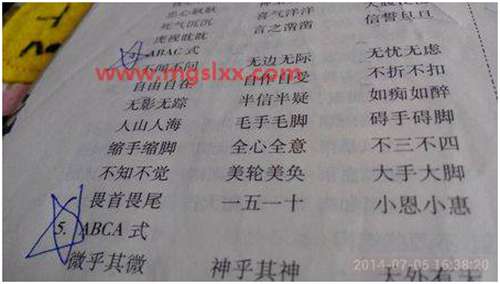 忠心耿耿 喜气洋洋
死气沉沉 言之凿凿 信誓旦旦
虎视眈眈
ABAC 式
不闻不问 无边无际 无忧无虑
自由自在 自作自受 不折不扣
无影无踪 半信半疑 如痴如醉
人山人海 毛手毛脚 碍手碍脚
缩手缩脚 全心全意 不三不四
不知不觉 美轮美奂 大手大脚
畏首畏尾 一五一十 小恩小惠
5. ABCA 式
微乎其微 神乎其神 天外有天
www.mgslxx.com
2014-07-05 16:38:20